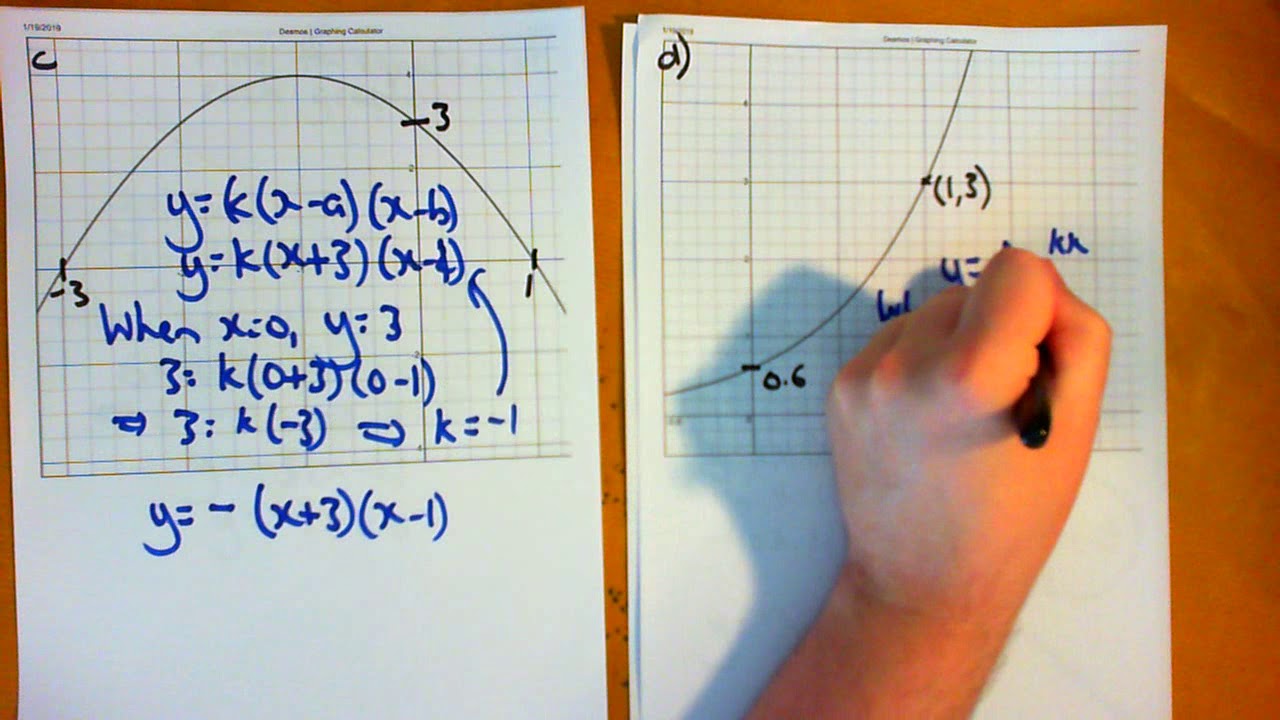 1/19/2019
Desmos | Graphing Calculator
c
4
3
2
y=k(x-a)(x-b)
y=k(x+3)(x-1)
-3
1
When x=0, y=3
3=k(0+3)(0-1)
⇒ 3=k(-3) ⇒ k=-1
y=-(x+3)(x-1)
Desmos | Graphing Calculator
d)
4
3
(1,3)
y=
kx
0.6